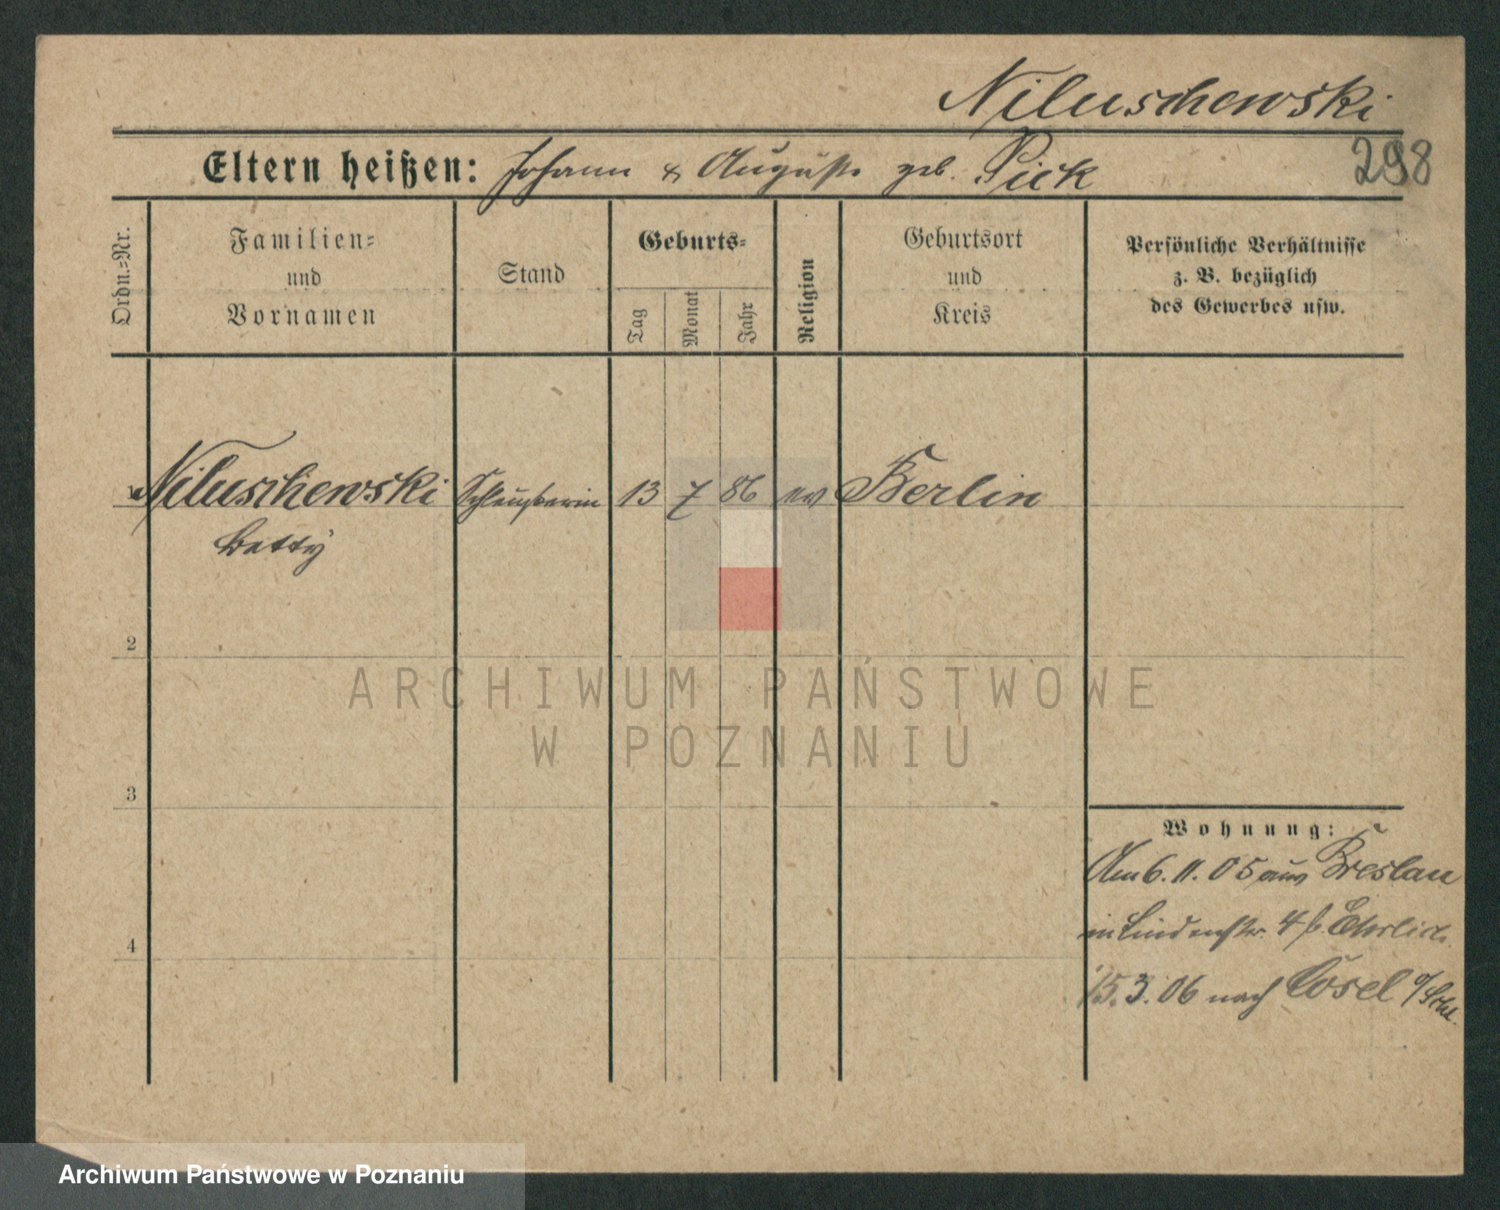 Niluschewski
298
Eltern heißen: Johann & Auguste geb. Pick
Ordn.-Nr.
Familien- und Vornamen
Stand
Geburts-
Tag
Monat
Jahr
Religion
Geburtsort und Kreis
Persönliche Verhältnisse z. B. bezüglich des Gewerbes usw.
Niluschewski 13 7 86 ev Berlin
Betty
2
3
4
Wohnung:
Am 6. 11. 05 aus Breslau
in Lindenstr. 4 b. Ehrlich
15. 3. 06 nach Cosel
ARCHIWUM PAŃSTWOWE
W POZNANIU
Archiwum Państwowe w Poznaniu